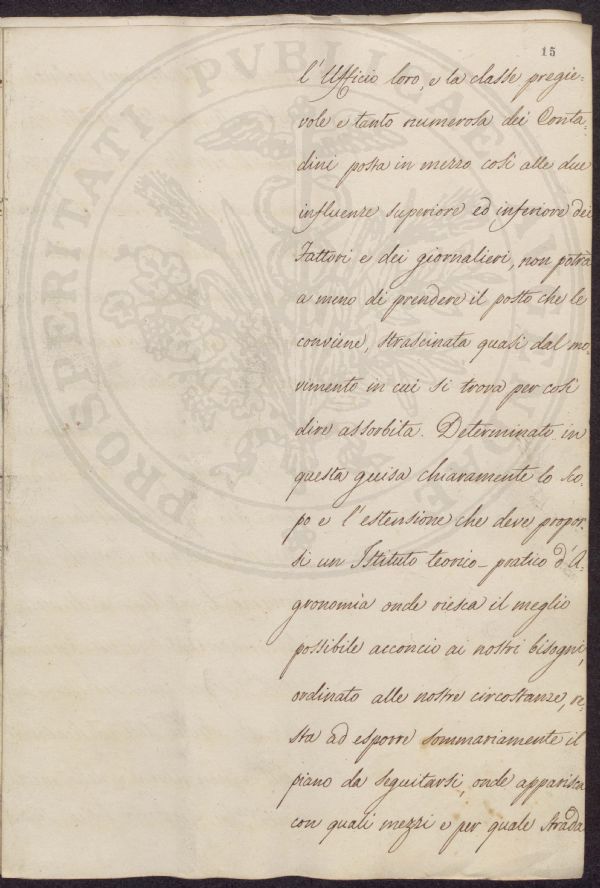 15
l'Ufficio loro, e la classe pregie=
vole e tanto numerosa dei Conta=
dini posta in mezzo così alle due
influenze superiore ed inferiore dei
Fattori e dei giornalieri, non potrà
a meno di prendere il posto che le
conviene, strascinata quasi dal mo=
vimento in cui si trova per così
dire assorbita. Determinati in
questa guisa chiaramente lo sco=
po e l'estensione che deve propor=
si un Istituto teorico-pratico d'A=
gronomia onde riesca il meglio
possibile acconcio ai nostri bisogni,
ordinato alle nostre circostanze, re=
sta ad esporre sommariamente il
piano da seguitarsi, onde apparisca
con quali mezzi e per quale strada
PROSPERITATI PVBLICAE AVGENDAE